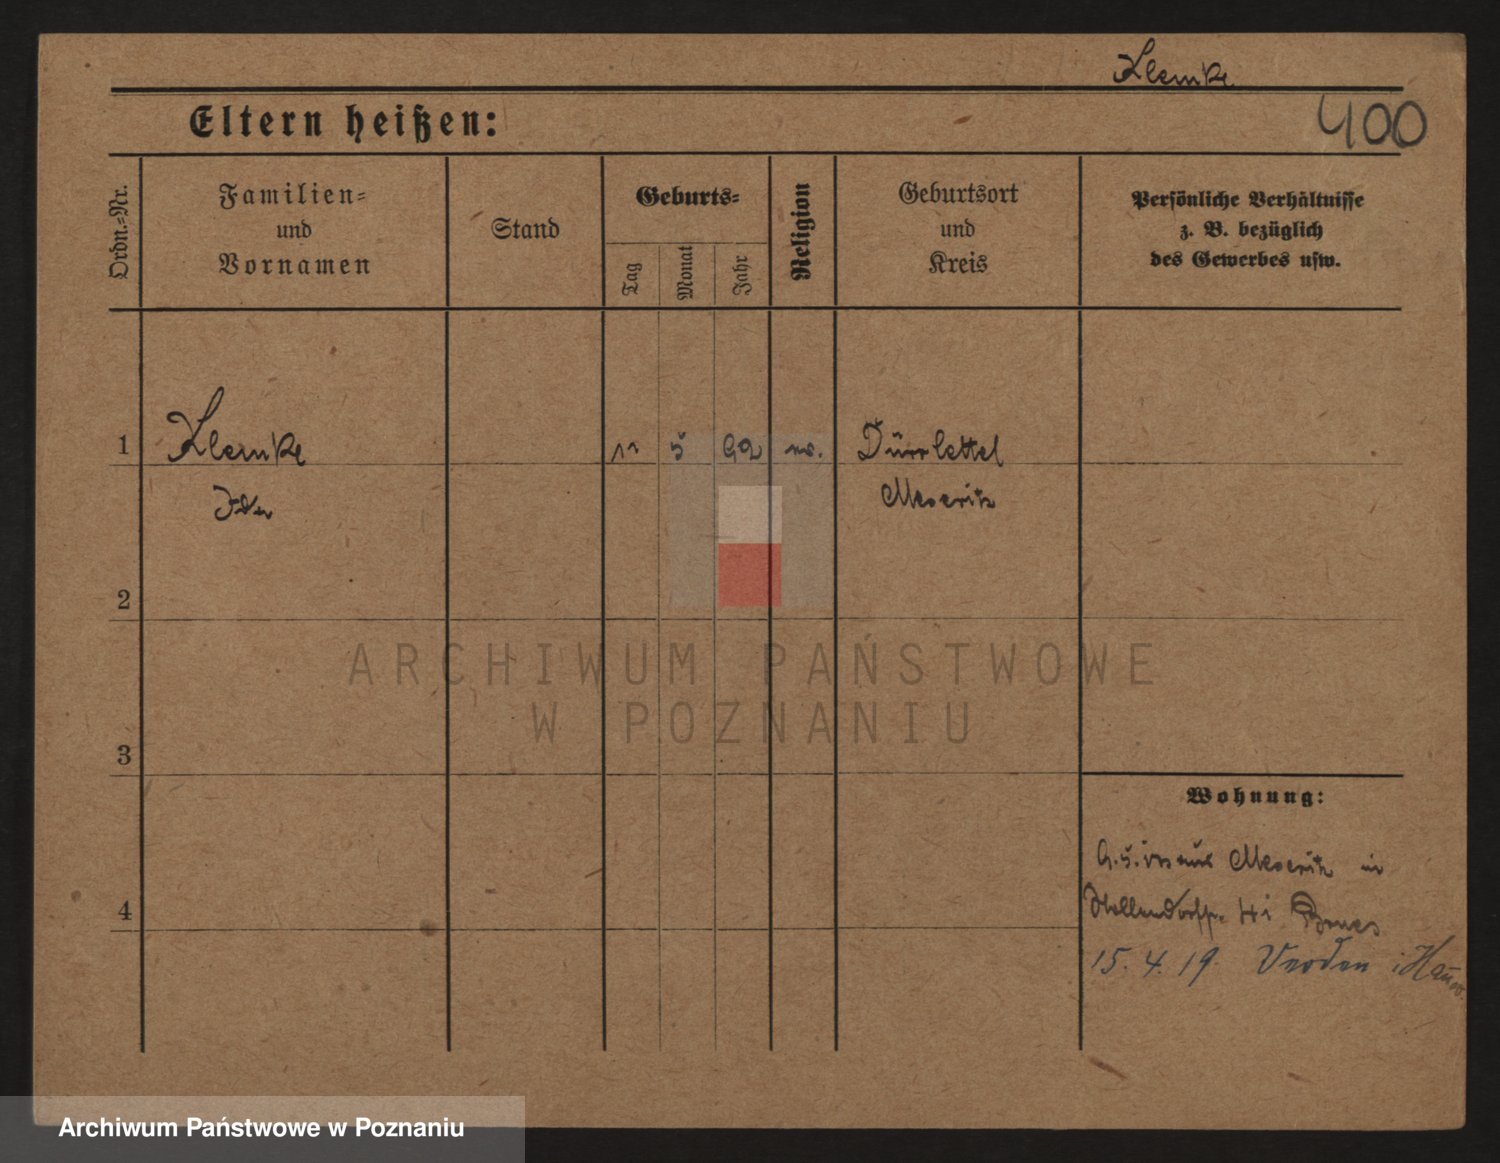 Klemke
400
Eltern heißen:
Ordn.-Nr.
Familien-
und
Vornamen
Stand
Geburts-
Tag
Monat
Jahr
Religion
Geburtsort
und
Kreis
Persönliche Verhältnisse
z. B. bezüglich
des Gewerbes usw.
1 Klemke 11 5 92 Dürrlettel
Ida Meseritz
2
ARCHIWUM PAŃSTWOWE
W POZNANIU
3
Wohnung:
aus Meseritz in
4
15. 4. 19. Verden i Hannov.
Archiwum Państwowe w Poznaniu